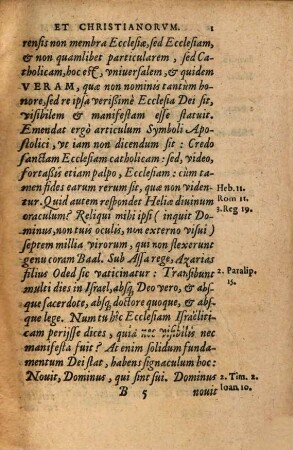 ET CHRISTIANORVM. 1
rensis non membra Ecclesiæ, sed Ecclesiam,
& non quamlibet particularem, sed Ca-
tholicam, hoc est, vniuersalem, & quidem
VERAM, quæ non nominis tantum ho-
nore, sed re ipsa verißimè Ecclesia Dei sit,
visibilem & manifestam esse statuit.
Emendat ergò articulum Symboli Apo-
stolici, vt iam non dicendum sit: Credo
sanctam Ecclesiam catholicam: sed, video,
fortaßis etiam palpo, Ecclesiam: cùm ta-
men fides earum rerum sit, quæ non viden-
tur. Quid autem respondet Heliæ diuinum
oraculum? Reliqui mihi ipsi (inquit Do-
minus, non tuis oculis, non externo visui)
septem millia virorum, qui non flexerunt
genu coram Baal. Sub Asa rege, Azarias
filius Oded sic vaticinatur: Transibunt
multi dies in Israel, absq; Deo vero, & abs-
que sacerdote, absq; doctore quoque, & abs-
que lege. Num tu hîc Ecclesiam Israëliti-
cam perijsse dices, quia nec visibilis nec
manifesta fuit? At enim solidum funda-
mentum Dei stat, habens signaculum hoc:
Nouit, Dominus, qui sint sui. Dominus
B 5 nouit
Heb. 11.
Rom 11.
3. Reg 19.
2. Paralip.
15.
2. Tim. 2.
Ioan 10.